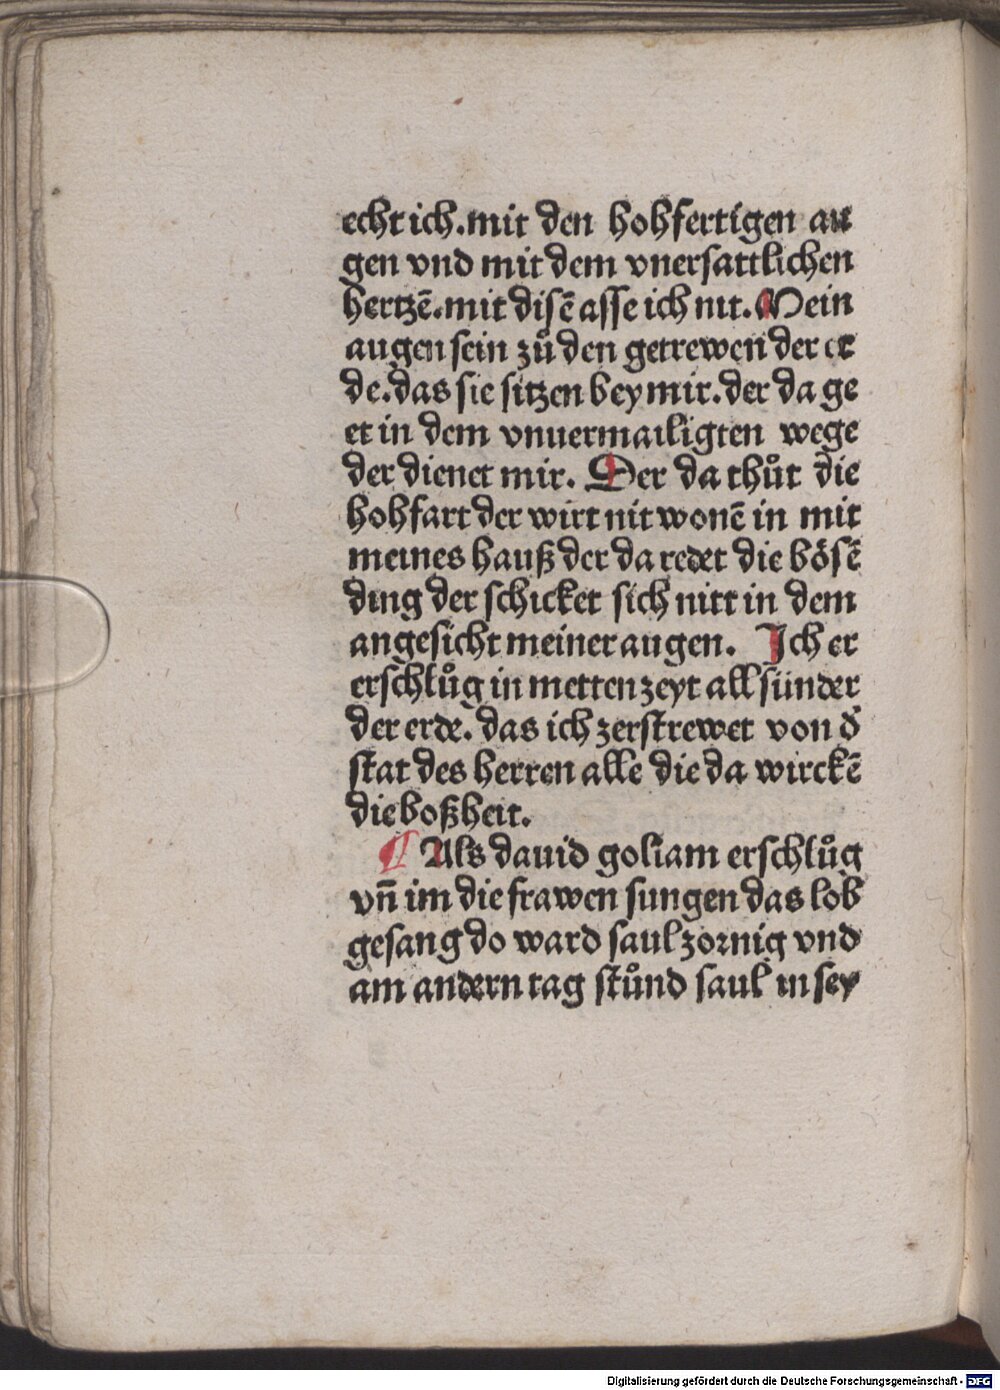 echt ich.mit den hohfertigen au
gen vnd mit dem vnersattlichen
hertzē.mit disē asse ich nit. Mein
augen sein zů den getrewen der er
de.das sie sitzen bey mir.der da ge
et in dem vnuermailigten wege
der dienet mir. Der da thůt die
hohfart der wirt nit wonē in mit
meines hauß der da redet die bősē
ding der schicket sich nitt in dem
angesicht meiner augen. Ich er
erschlůg in metten zeyt all sünder
der erde. das ich zerstrewet von ð
stat des herren alle die da wirckē
die boßheit.
¶ Als dauid goliam erschlůg
vn̄ im die frawen sungen das lob
gesang do ward saul zornig vnd
am andern tag stůnd saul in sey
Digitalisierung gefördert durch die Deutsche Forschungsgemeinschaft - DFG